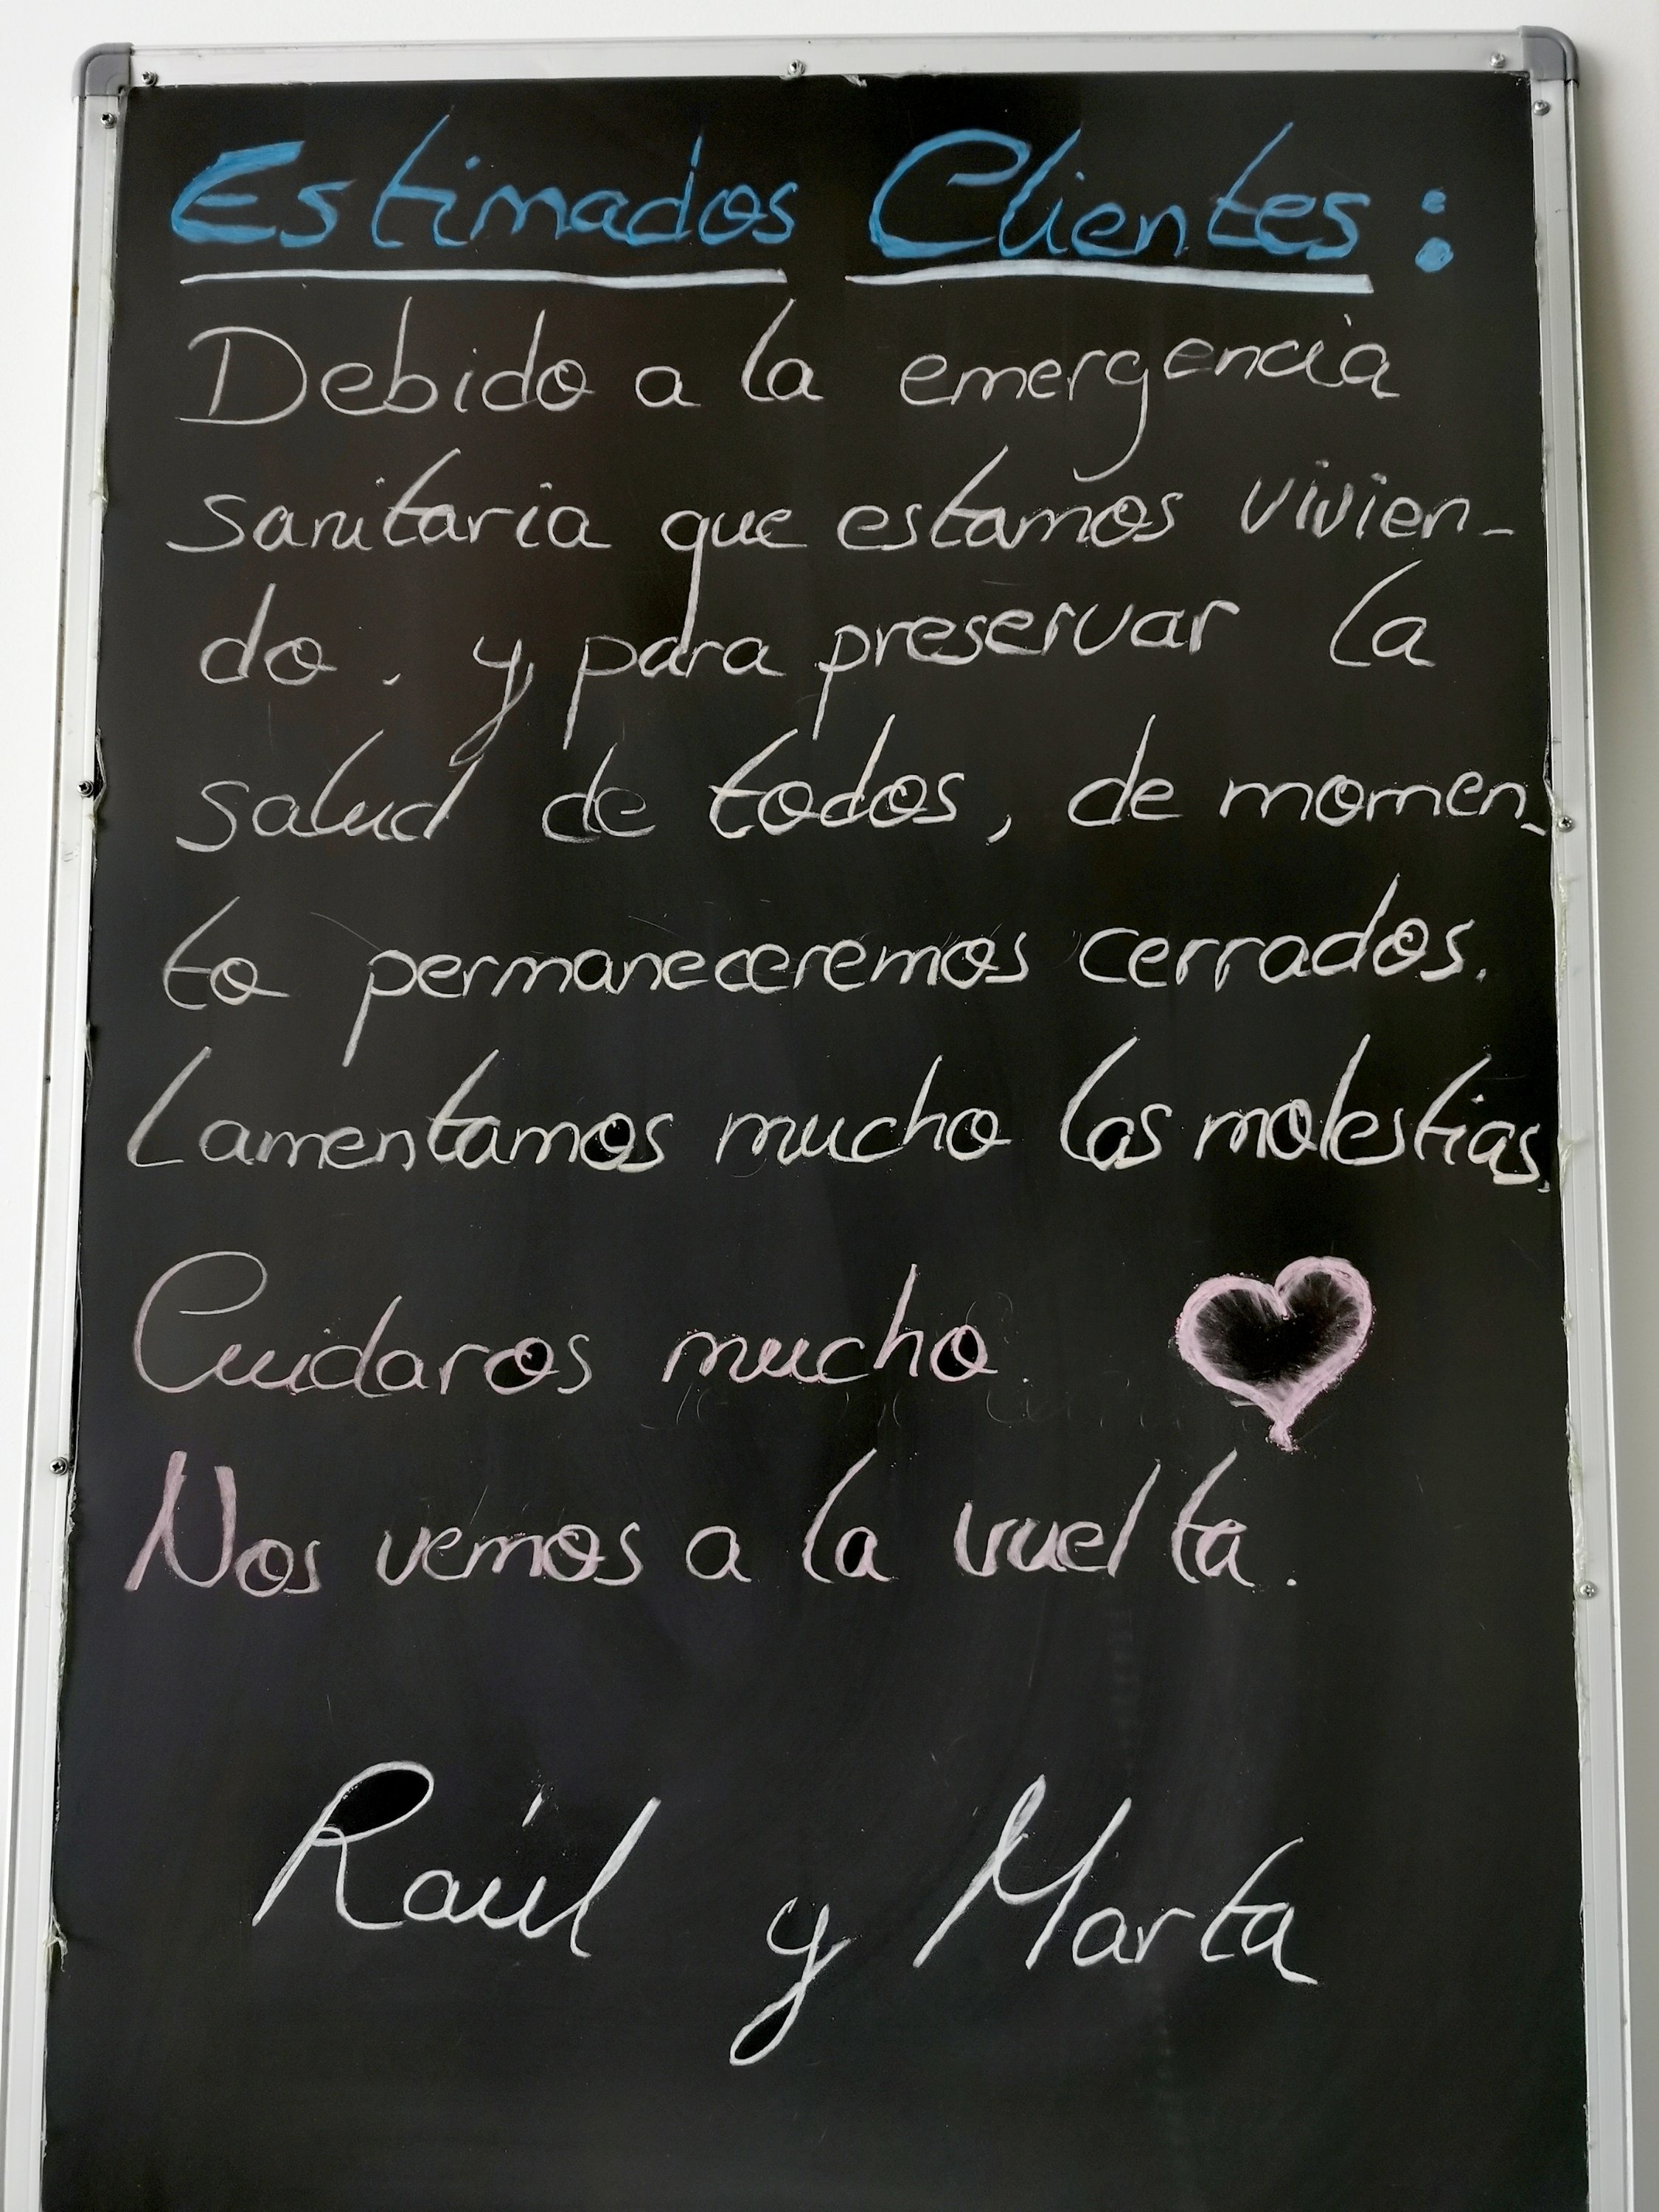 Estimados Clientes:
Debido a la emergencia
sanitaria que estamos vivien-
do. y para preservar la
salud de todos, de momen-
to permaneceremos cerrados.
Lamentamos mucho las molestias.
Cuidaros mucho.
Nos vemos a la vuelta.
Raúl y Marta